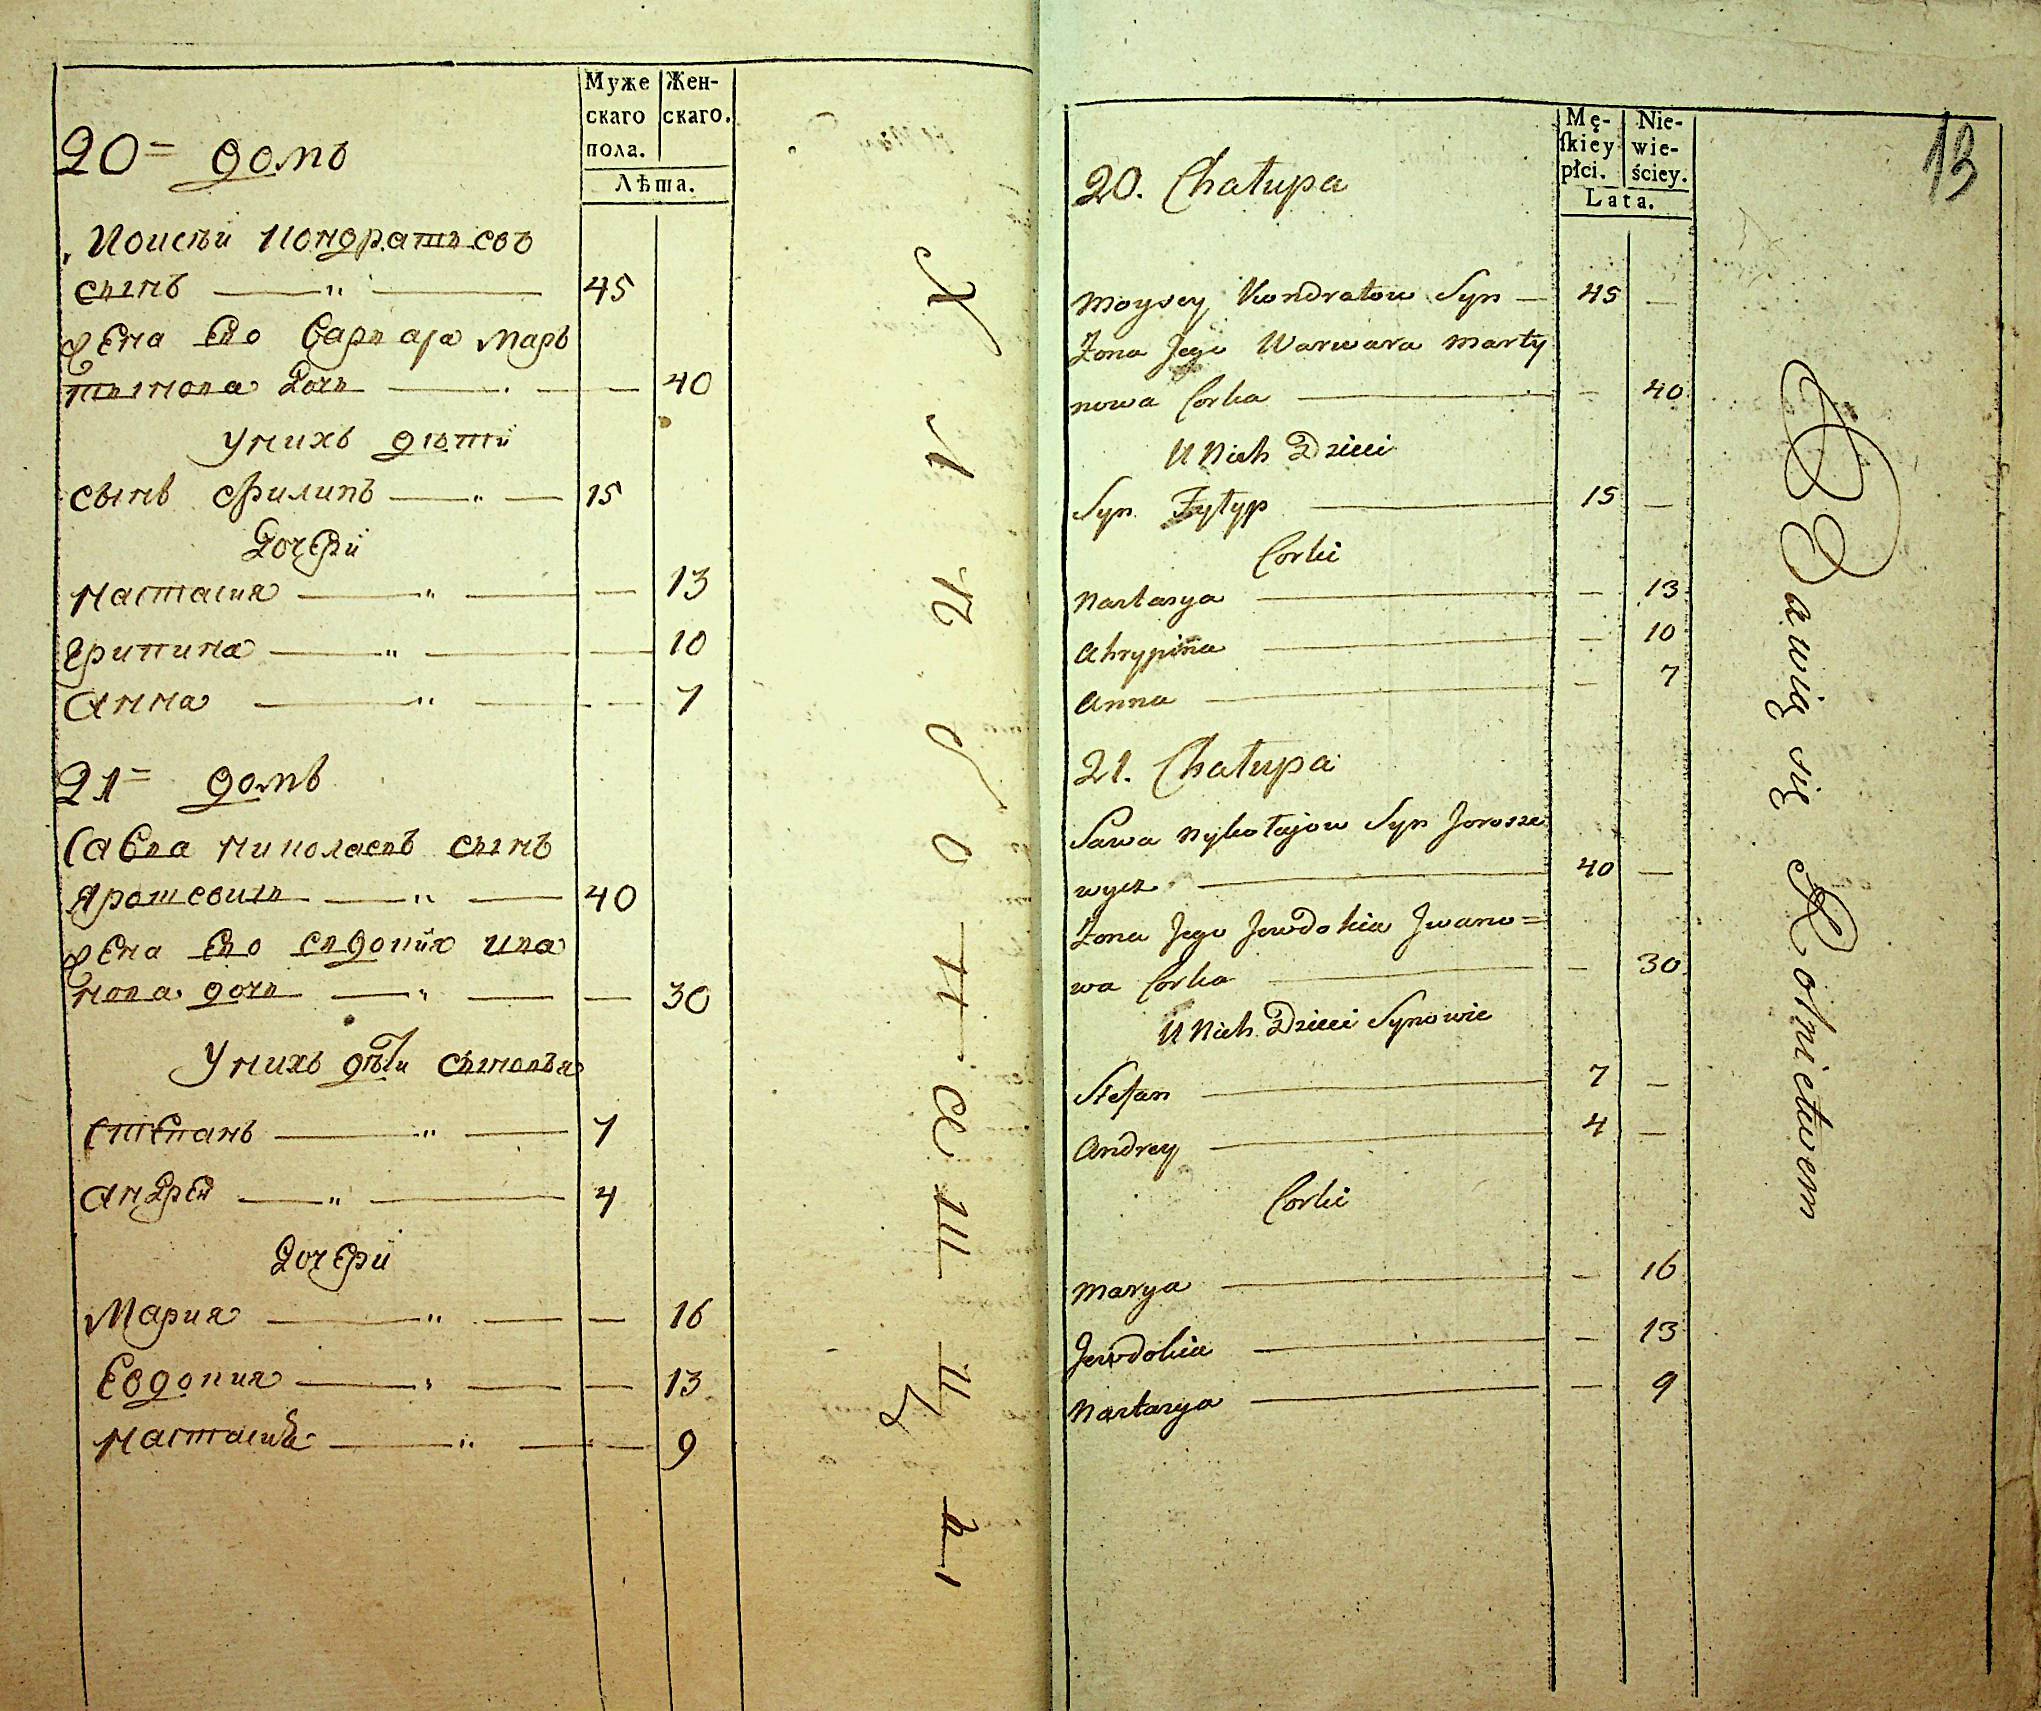 Муже
скаго
пола.
Жен-
скаго.
Лѣта.
20= домъ
Моисѣй Кондратьевъ
сынъ — „ — 45
жена Ево Варвара Мар
тынова Дочь — 40
У нихъ дѣти
сынъ Филипъ — „ — 15
Дочери
Настасия — „ — 13
Грипина — „ — 10
Анна — „ — 7
21= домъ
Савва Николаевъ сынъ
Ярошевичь — „ — 40
жена Ево Евдокия Ива
нова дочь — „ — 30
У нихъ дѣти сыновья
Степанъ — „ — 7
Андрей — „ — 4
Дочери
Мария — „ — 16
Евдокия — „ — 13
Настасия — „ — 9
Хлѣбопашцы
13
Mę-
skiey
płci.
Nie-
wie-
ściey.
Lata.
20. Chałupa
Moysey Kondratow Syn — 45 —
Żona Jego Warwara Marty
nowa Corka — — 40
U Nich Dzieci
Syn Fyłyp — 15 —
Corki
Nastasya — — 13
Ahrypina — — 10
Anna — — 7
21. Chałupa
Sawa Nykołajow Syn Jorosze
wycz — 40 —
Żona Jego Jewdokia Jwano=
wa Corka — — 30
U Nich Dzieci Synowie
Stefan — 7 —
Andrey — 4 —
Corki
Marya — — 16
Jewdokia — — 13
Nastasya — — 9
Bawią się Rolnictwem